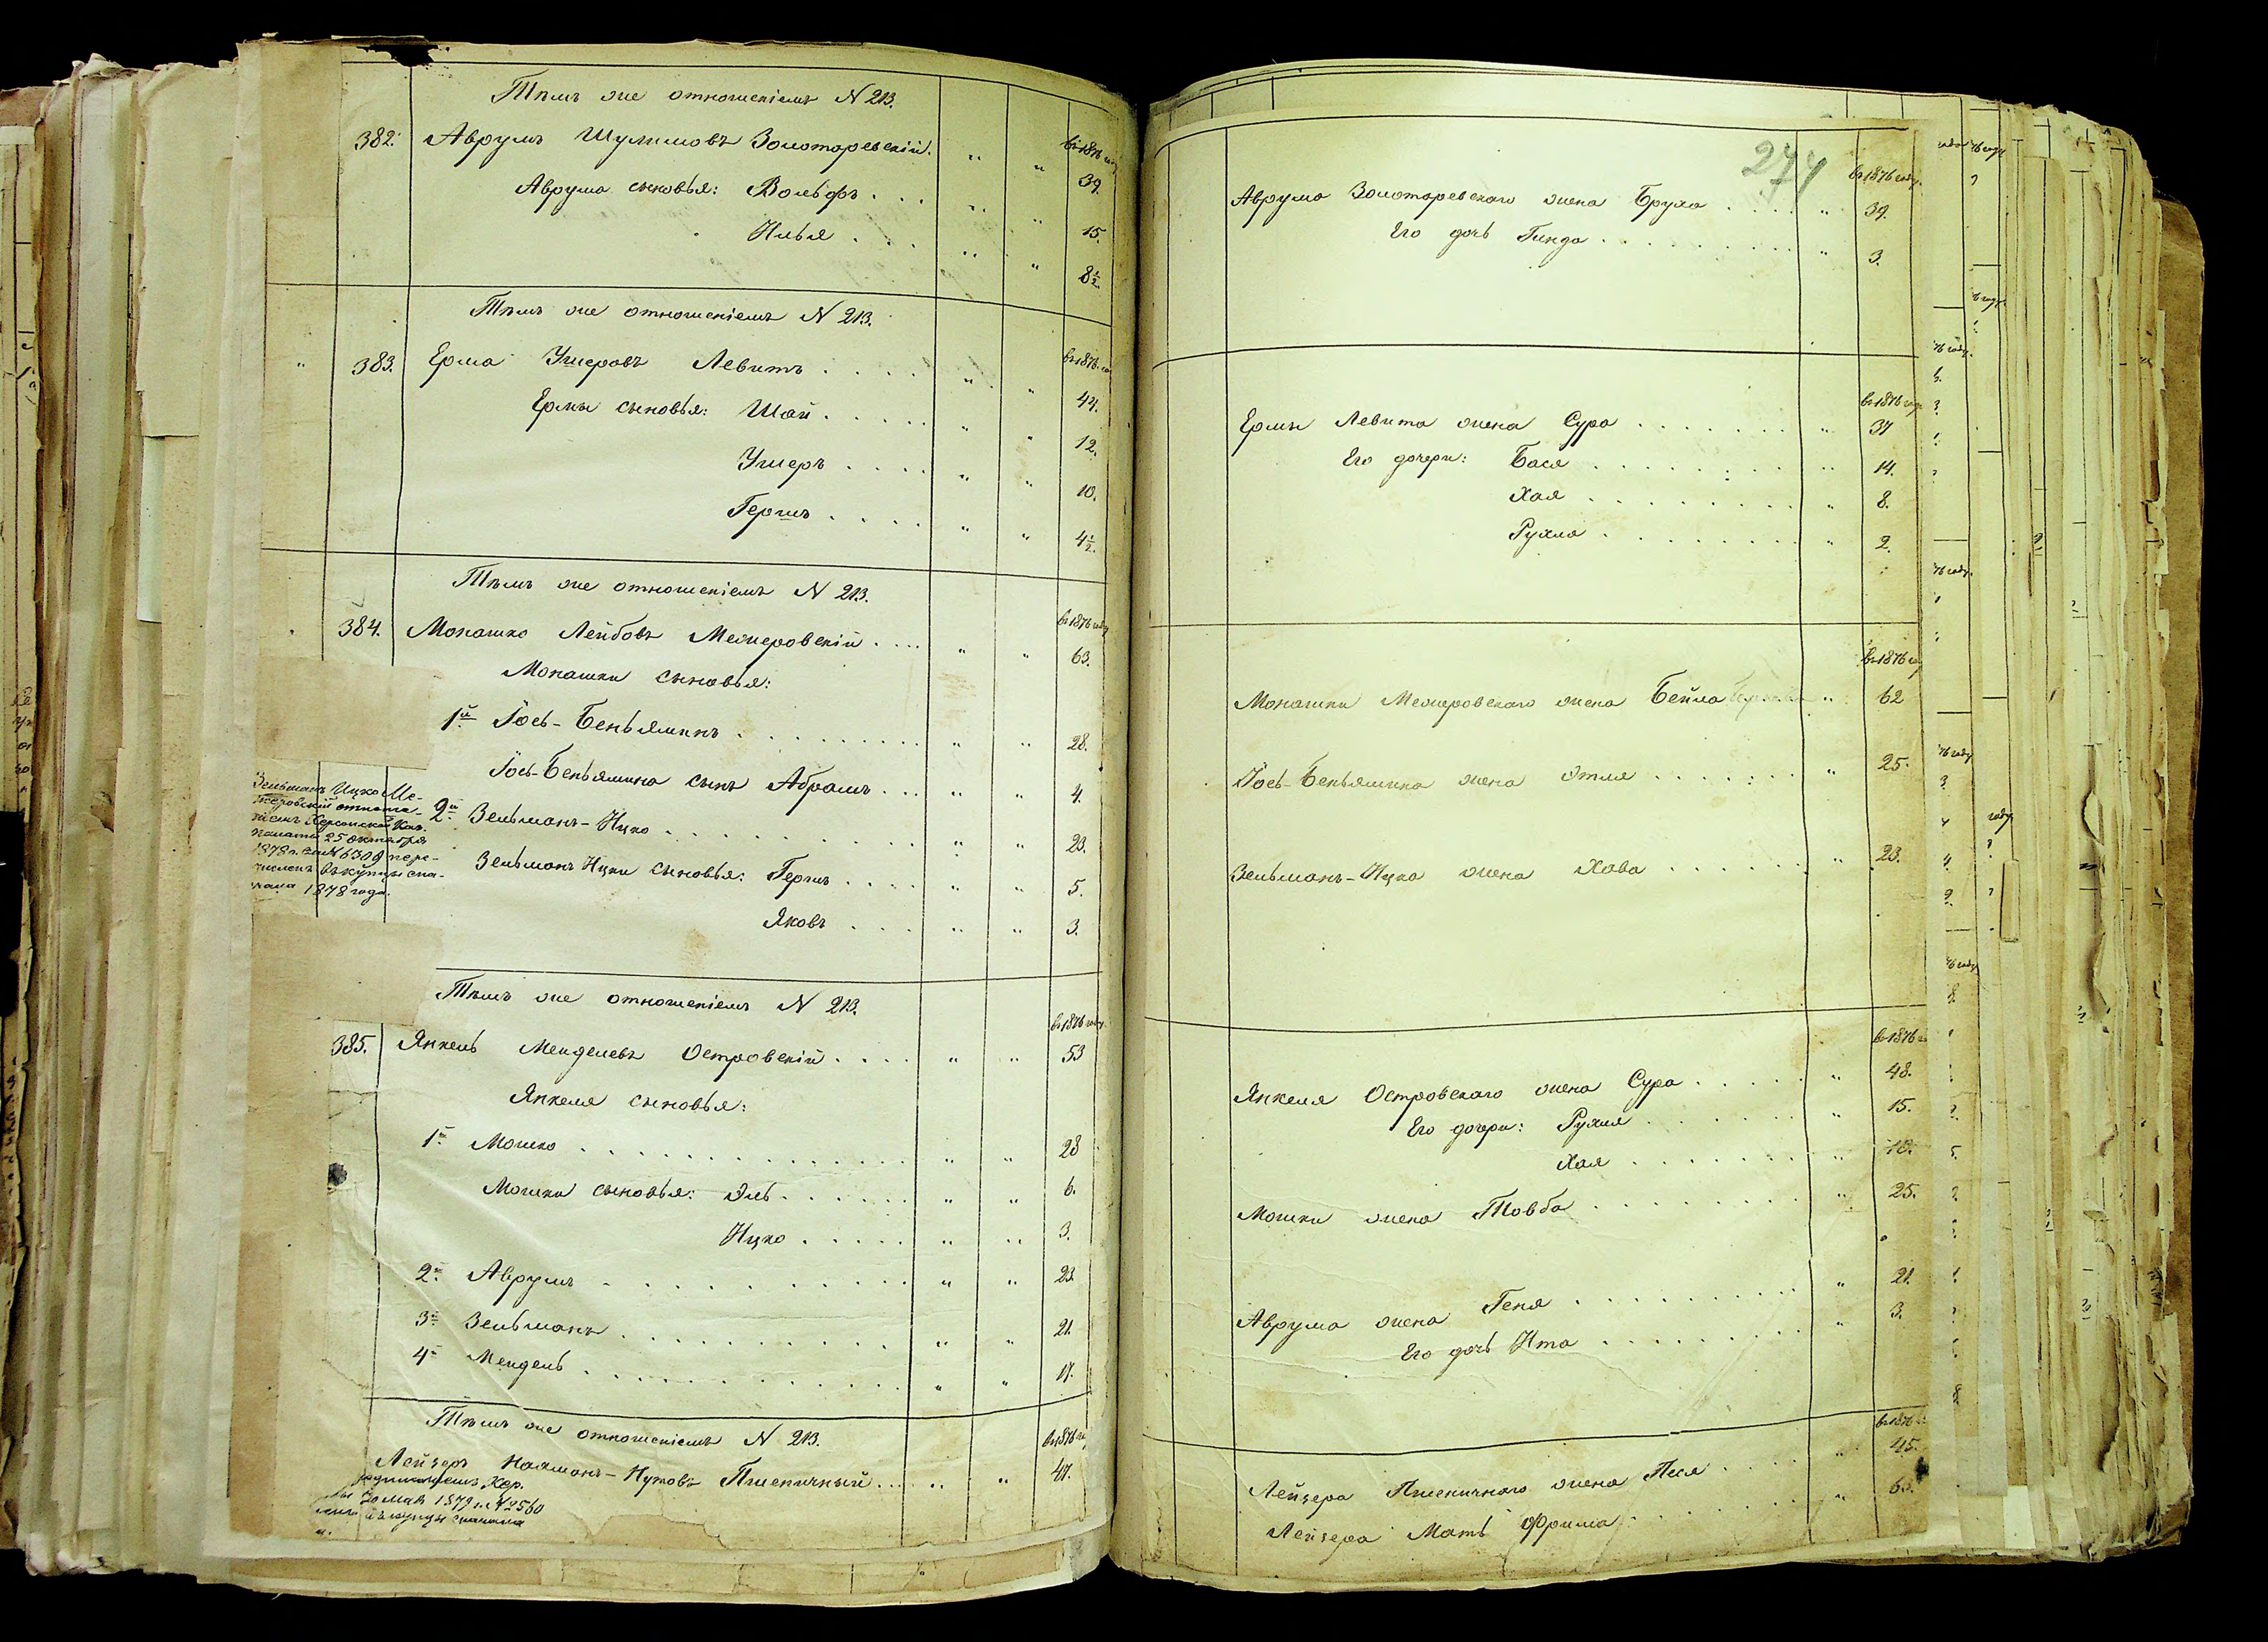 Тѣмъ же отношеніемъ N 213.
въ 1876 году
382. Аврумъ Шулимовъ Золотаревскій. " " 39.
Аврума сыновья: Вольфъ . . . " " 15.
Илья . . . " " 8½.
Тѣмъ же отношеніемъ N 213.
въ 1876 го
" 383. Ерма Ушеровъ Левитъ . . . . " " 44.
Ермы сыновья: Шая . . . . " " 12.
Ушеръ . . . . " " 10.
Гершъ . . . . " " 4½.
Тѣмъ же отношеніемъ N 213.
въ 1876 году
384. Монашко Лейбовъ Межеровскій . . . " " 63.
Монашки сыновья:
1й Іось-Беньяминъ . . . . . . . . " " 28.
Іось-Беньямина сынъ Абрамъ . . . " " 4.
2й Зельманъ-Ицко . . . . . . . . " " 23.
Зельманъ Ицки сыновья: Гершъ . . . . " " 5.
Яковъ . . . . " " 3.
Зельманъ Ицко Ме-
жеровскій отноше-
ніемъ Херсонской Каз.
палаты 25 октября
1878 г. за N 6309 пере-
численъ въ купцы сна-
чала 1878 года.
Тѣмъ же отношеніемъ N 213.
въ 1876 году
385. Янкель Менделевъ Островскій . . . . " " 53
Янкеля сыновья:
1й Мошко . . . . . . . . . . . . " " 28
Мошки сыновья: Эль . . . . . . " " 6.
Ицко . . . . . " " 3.
2й Аврумъ . . . . . . . . . . . " " 23.
3й Зельманъ . . . . . . . . . . " " 21.
4й Мендель . . . . . . . . . . . " " 17.
Тѣмъ же отношеніемъ N 213.
въ 1876 го
Лейзеръ Нахманъ-Нутовъ Пшеничный . . . " " 47.
Хер.
30 мая 1879 г. N 2560
въ купцы сначала
274
въ 1876 году.
Аврума Золотаревскаго жена Бруха . . . . " 39.
Его дочь Гинда . . . . . . . . . " 3.
въ 1876 году
Ермы Левита жена Сура . . . . . . . " 37
Его дочери: Бася . . . . . . . . . " 14.
Хая . . . . . . . . . " 8.
Рухля . . . . . . . . . " 2.
въ 1876 го
Монашки Межеровскаго жена Бейла " 62
Іось-Беньямина жена Этля . . . . . . . " 25.
Зельманъ-Ицка жена Хава . . . . . . . " 23.
въ 1876 го
Янкеля Островскаго жена Сура . . . . . " 48.
Его дочери: Рухля . . . . . . . " 15.
Хая . . . . . . . . " 10.
Мошки жена Товба . . . . . . . . . " 25.
Аврума жена Геня . . . . . . . . . " 21.
Его дочь Ита . . . . . . . . . " 3.
въ 1876 г.
Лейзера Пшеничнаго жена Песя . . . . " 45.
Лейзера Мать Фрима . . . . . . . " 65.